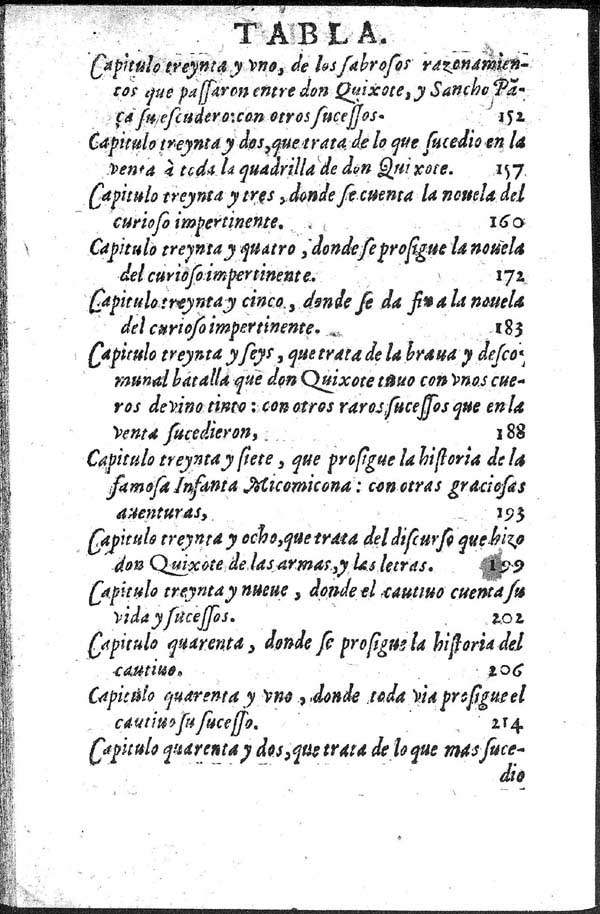 TABLA.
Capitulo treynta y vno, de los sabrosos razonamien-
tos que passaron entre don Quixote, y Sancho Pã-
ça su escudero: con otros sucessos. 152
Capitulo treynta y dos, que trata de lo que sucedio en la
venta à toda la quadrilla de don Quixote. 157
Capitulo treynta y tres, donde se cuenta la nouela del
curioso impertinente. 160
Capitulo treynta y quatro, donde se prosigue la nouela
del curioso impertinente. 172
Capitulo treynta y cinco, donde se da fin a la nouela
del curioso impertinente. 183
Capitulo treynta y seys, que trata de la braua y desco-
munal batalla que don Quixote tuuo con vnos cue-
ros de vino tinto: con otros raros sucessos que en la
venta sucedieron, 188
Capitulo treynta y siete, que prosigue la historia de la
famosa Infanta Micomicona: con otras graciosas
auenturas, 193
Capitulo treynta y ocho, que trata del discurso que hizo
don Quixote de las armas, y las letras. 199
Capitulo treynta y nueue, donde el cautiuo cuenta su
vida y sucessos. 202
Capitulo quarenta, donde se prosigue la historia del
cautiuo. 206
Capitulo quarenta y vno, donde toda via prosigue el
cautiuo su sucesso. 214
Capitulo quarenta y dos, que trata de lo que mas suce-
dio